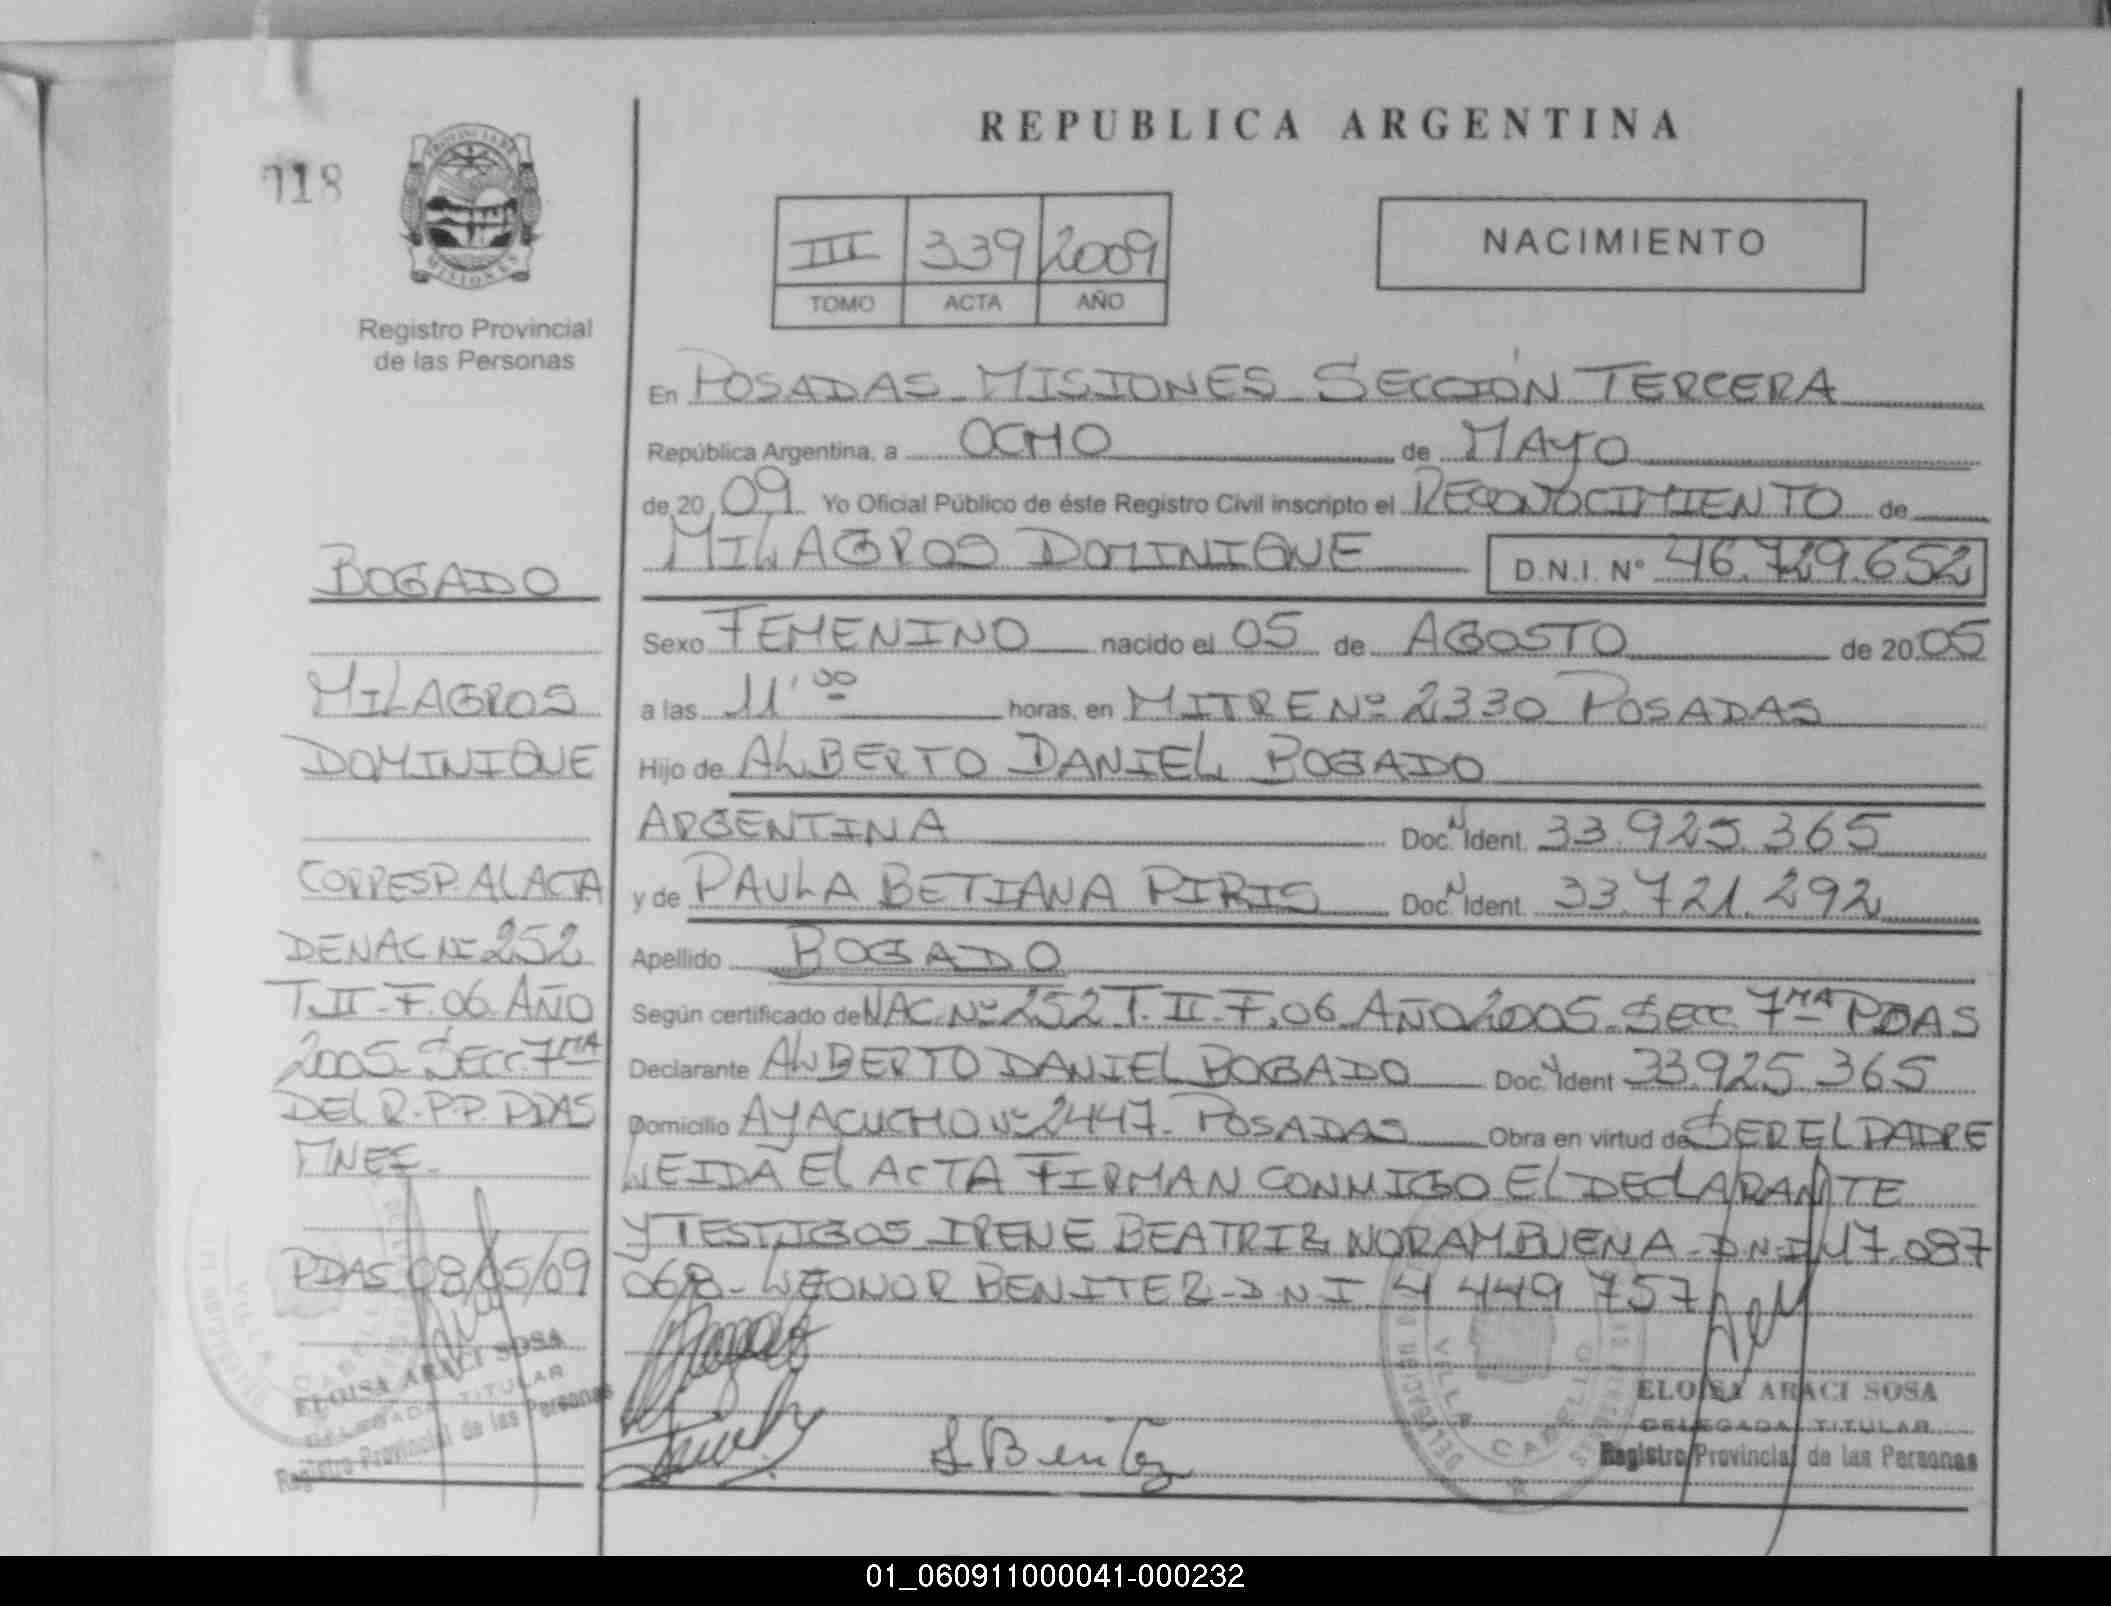 REPUBLICA ARGENTINA
118
PROVINCIA DE
MISIONES
Registro Provincial
de las Personas
III 339 2009
TOMO ACTA AÑO
NACIMIENTO
En POSADAS-MISIONES-SECCIÓN TERCERA
República Argentina, a OCHO de MAYO
de 20 09 Yo Oficial Público de éste Registro Civil inscripto el RECONOCIMIENTO de
MILAGROS DOMINIQUE D.N.I. N° 46.729.652
Sexo FEMENINO nacido el 05 de AGOSTO de 20 05
a las 11'00 horas, en MITRE Nº 2330 POSADAS
Hijo de ALBERTO DANIEL BOGADO
ARGENTINA Doc. N Ident. 33.925.365
y de PAULA BETIANA PIRIS Doc. N Ident. 33.721.292
Apellido BOGADO
Según certificado de NAC. Nº 252 T. II-F.06 AÑO 2005-SECC. 7MA PDAS
Declarante ALBERTO DANIEL BOGADO Doc. N Ident 33.925.365
Domicilio AYACUCHO Nº 2447-POSADAS Obra en virtud de SER EL PADRE
LEIDA EL ACTA FIRMAN CONMIGO EL DECLARANTE
Y TESTIGOS IRENE BEATRIZ NORAMBUENA-D.N.I 17.087
068-LEONOR BENITEZ-D.N.I. 4 449 757
BOGADO
MILAGROS
DOMINIQUE
CORRESP. AL ACTA
DE NAC Nº 252
T.II-F.06 AÑO
2005-SECC. 7MA
DEL R.P.P. PDAS
MNES.
PDAS 08/05/09
ELOISA ARACI SOSA
DELEGADA TITULAR
Registro Provincial de las Personas
L Benitez
VILLA CABELLO
ELOISA ARACI SOSA
DELEGADA TITULAR
Registro Provincial de las Personas
01_060911000041-000232